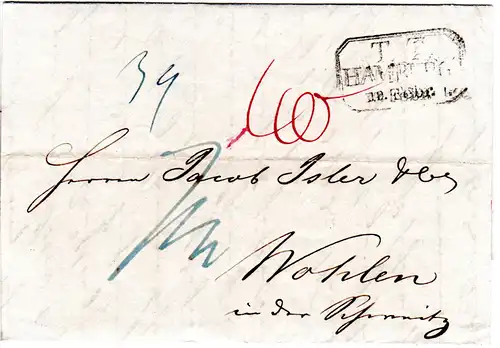 T. T.
HAMBURG
18. Febr.
39
40
Herrn Jacob Isler & Co
Wohlen
in der Schweitz